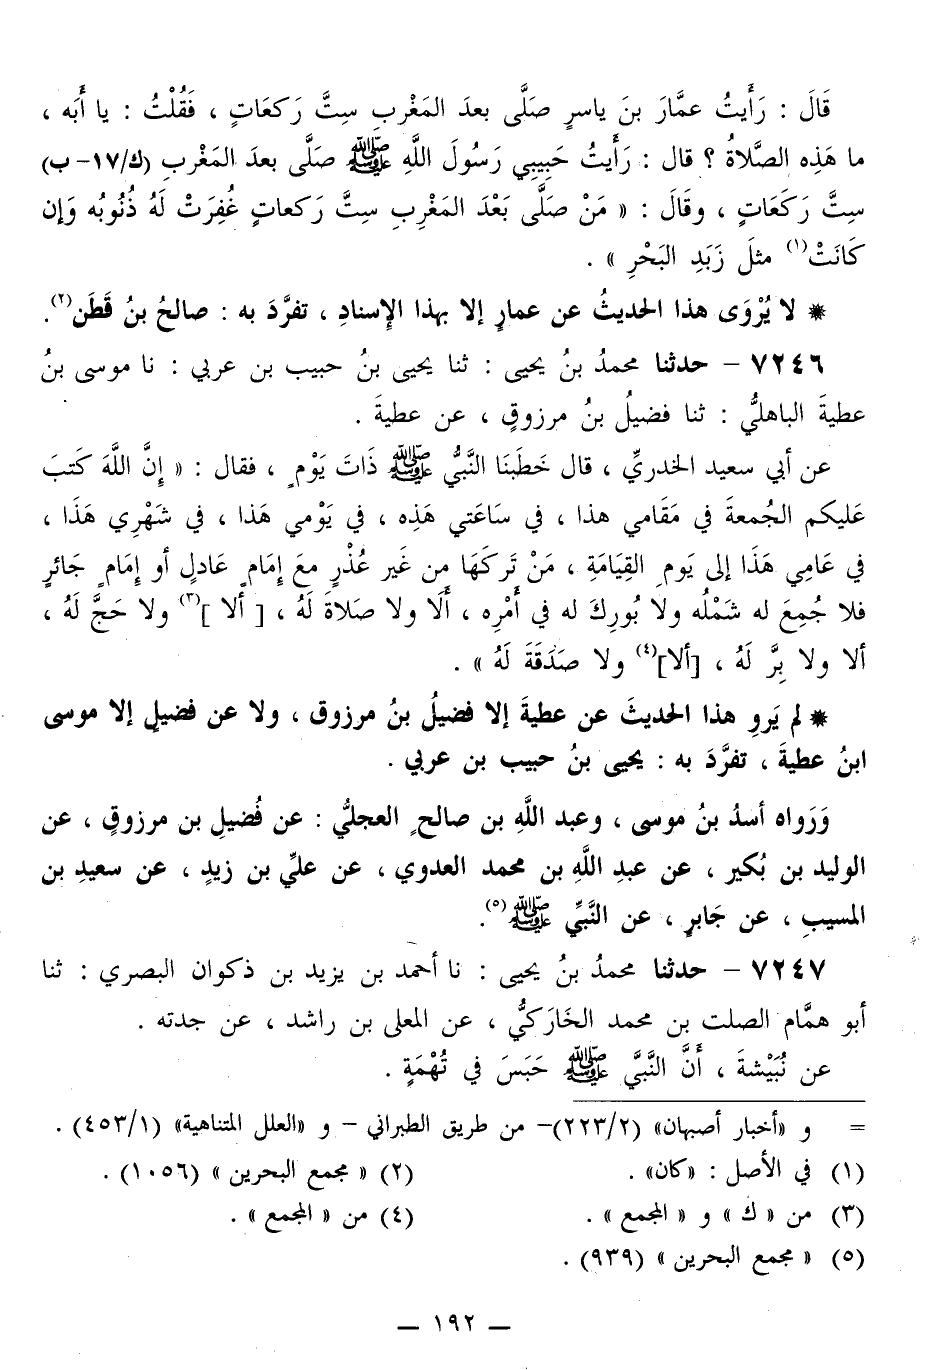 قَالَ : رَأَيتُ عمَّارَ بنَ ياسرٍ صَلَّى بعدَ المَغْربِ سِتَّ رَكعَاتٍ ، فَقُلْتُ : يا أَبَه ،
ما هَذِه الصَّلاةُ ؟ قال : رَأَيتُ حَبِيبِي رَسُولَ اللَّهِ ﷺ صَلَّى بعدَ المَغْربِ (ك/١٧- ب)
ستَّ رَكَعَاتٍ ، وقَالَ : « مَنْ صَلَّى بَعْدَ المَغْرِبِ ستَّ رَكعاتٍ غُفِرَتْ لَهُ ذُنُوبُه وَإن
كَانَتْ(١) مثلَ زَبَدِ البَحْرِ » .
* لا يُرْوَى هذا الحديثُ عن عمارٍ إلا بهذا الإسنادِ ، تفرَّدَ به : صالحُ بنُ قَطَن(٢).
٧٢٤٦ – حدثنا محمدُ بنُ يحيى : ثنا يحيى بنُ حبيب بن عربي : نا موسى بنُ
عطيةَ الباهليُّ : ثنا فضيلُ بنُ مرزوقٍ ، عن عطيةَ .
عن أبي سعيد الخدريِّ ، قال خَطَبنَا النَّبيُّ ﷺ ذَاتَ يَوْمٍ ، فقال : « إِنَّ اللَّهَ كَتبَ
عَليكم الجُمعةَ في مَقَامي هذا ، في سَاعَتي هَذِه ، في يَوْمي هَذا ، في شَهْرِي هَذَا ،
في عَامِي هَذَا إلى يَومِ القِيَامَةِ ، مَنْ تَركَهَا مِن غَير عُذْرٍ معَ إمَامٍ عَادلٍ أو إمَامٍ جَائرٍ
فلا جُمِعَ له شَمْلُه ولا بُورِكَ له في أَمْرِه ، أَلَا ولا صَلاةَ لَهُ ، [ ألا ](٣) ولا حَجَّ لَهُ ،
ألا ولا بِرَّ لَهُ ، [ألا](٤) ولا صَدَقَةَ لَهُ » .
* لم يَروِ هذا الحديثَ عن عطيةَ إلا فضيلُ بنُ مرزوق ، ولا عن فضيلٍ إلا موسى
ابنُ عطيةَ ، تفرَّدَ به : يحيى بنُ حبيب بن عربي .
وَرَواه أسدُ بنُ موسى ، وعبد اللَّهِ بن صالحٍ العجليُّ : عن فُضيلِ بن مرزوقٍ ، عن
الوليد بن بُكير ، عن عبدِ اللَّهِ بن محمد العدوي ، عن عليِّ بن زيدٍ ، عن سعيدِ بن
المسيبِ ، عن جَابرٍ ، عن النَّبيِّ ﷺ(٥).
٧٢٤٧ – حدثنا محمدُ بنُ يحيى : نا أحمد بن يزيد بن ذكوان البصري : ثنا
أبو همَّام الصلت بن محمد الخَارَكيُّ ، عن المعلى بن راشد ، عن جدته .
عن نُبَيْشةَ ، أَنَّ النَّبيَّ ﷺ حَبَسَ في تُهْمَةٍ .
= و «أخبار أصبهان» (٢٢٣/٢)– من طريق الطبراني – و «العلل المتناهية» (٤٥٣/١) .
(١) في الأصل : «كان» . (٢) « مجمع البحرين » (١٠٥٦) .
(٣) من « ك » و « المجمع » . (٤) من « المجمع » .
(٥) « مجمع البحرين » (٩٣٩) .
– ١٩٢ –